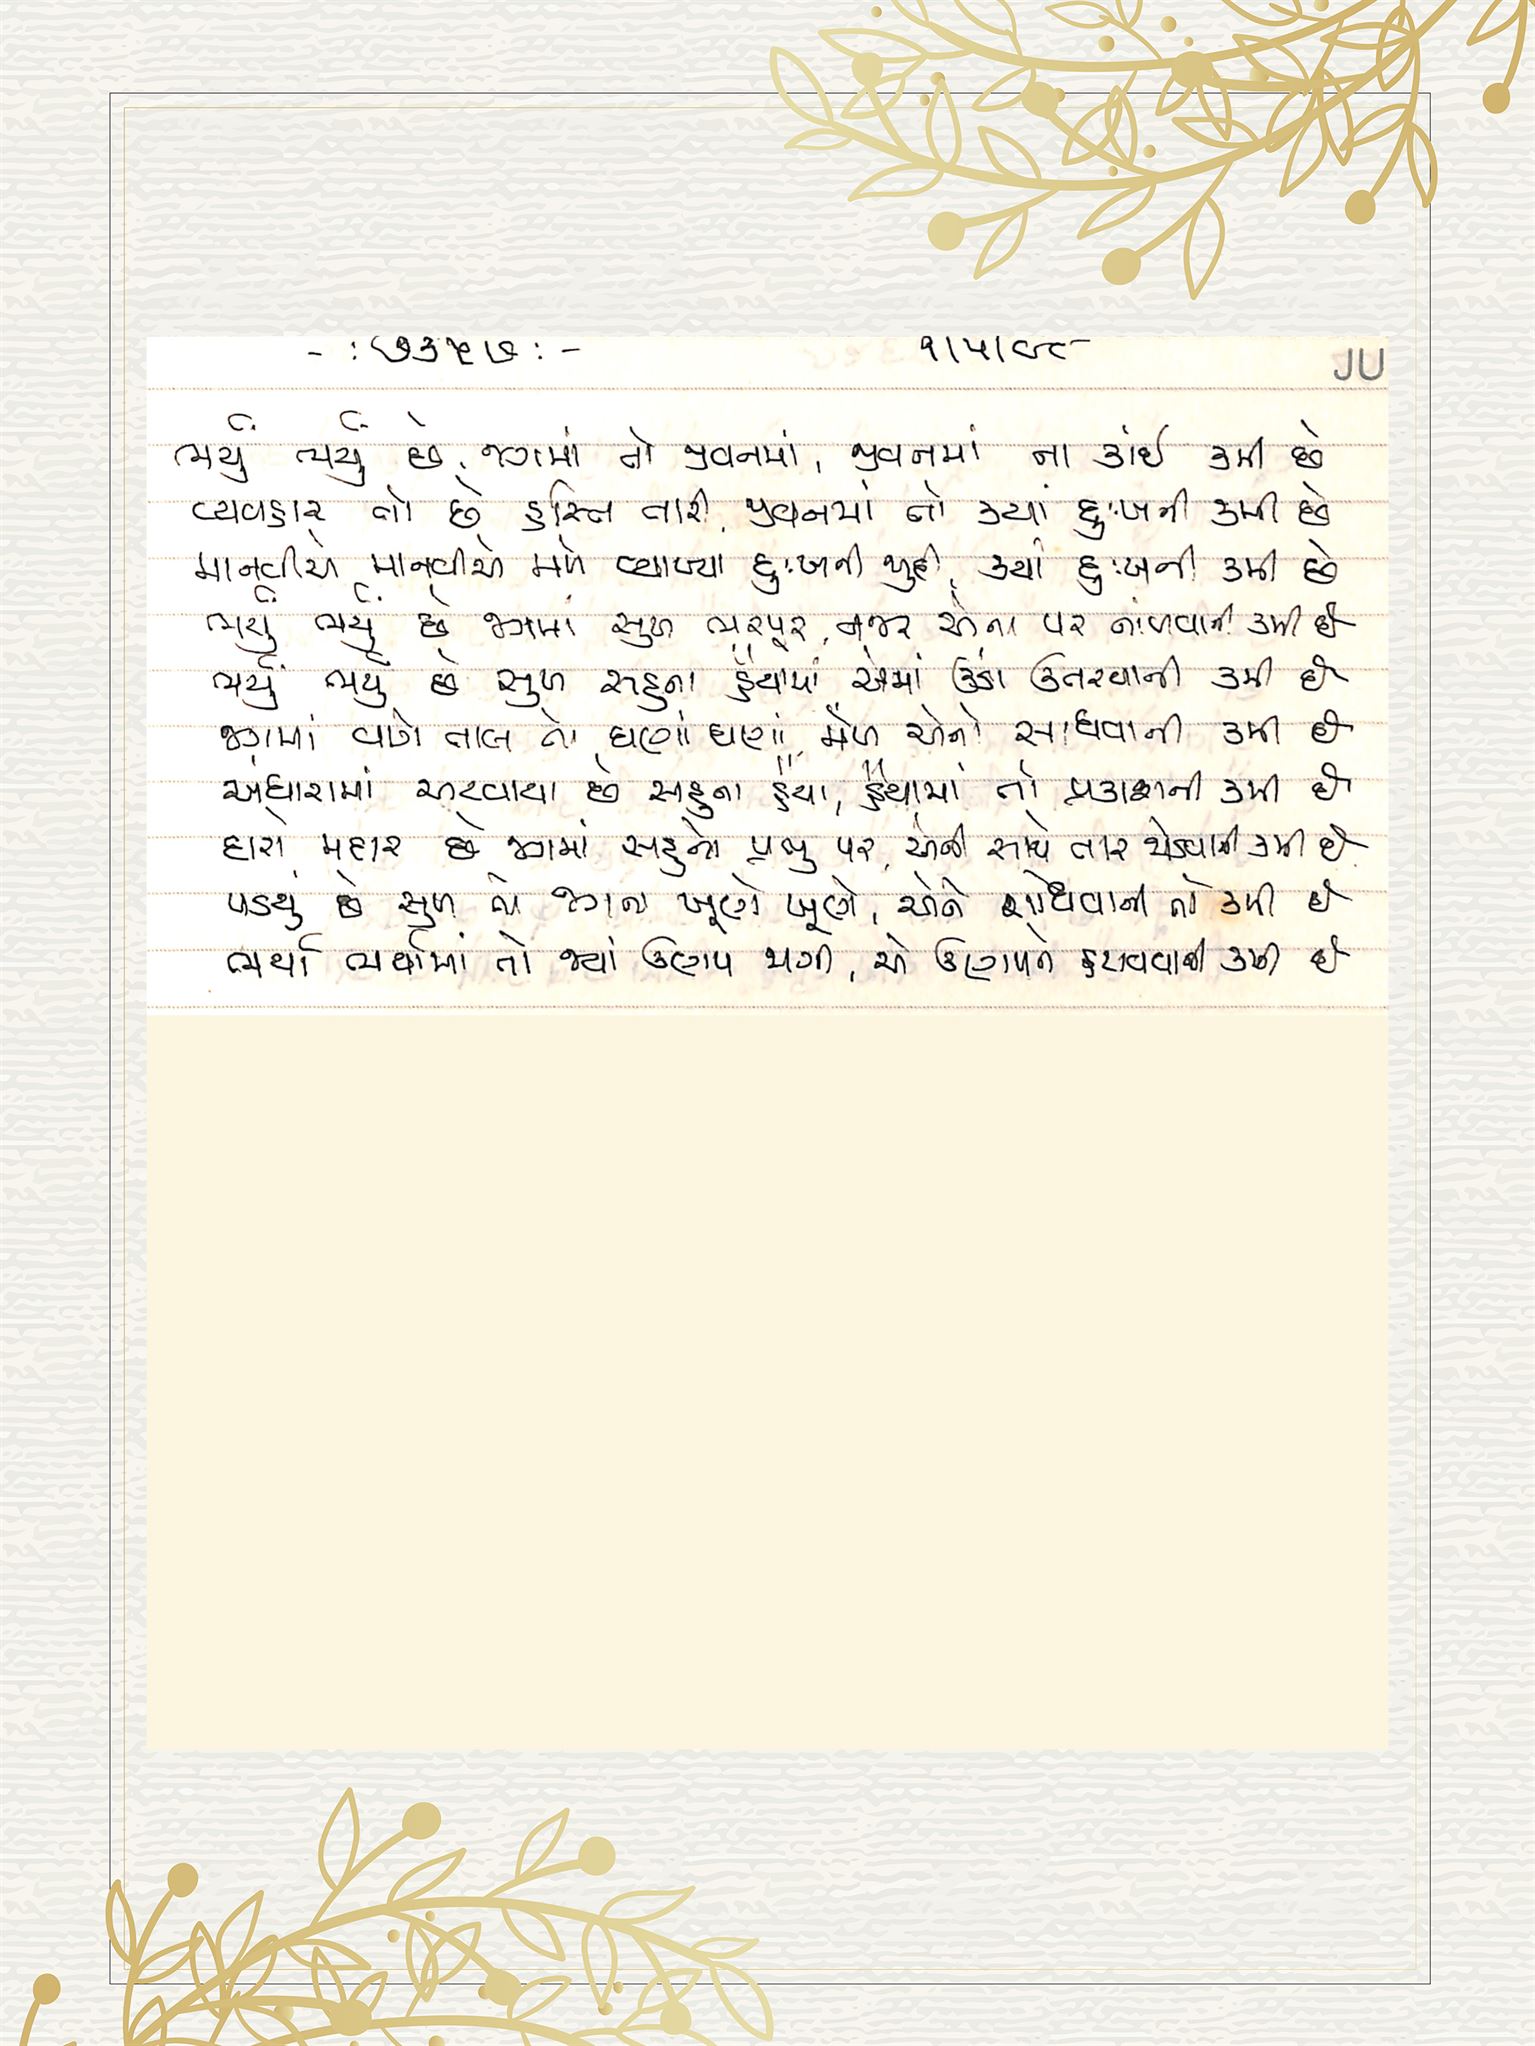 - : ૭૩૫૭ : - ૧/૫/૯૮ JU
ભર્યું ભર્યું છે જગમાં તો જીવનમાં, જીવનમાં ના કાંઈ કમી છે
વ્યવહાર તો છે હસ્તિ તારી, જીવનમાં તો ક્યાં દુઃખની કમી છે
માનવીએ માનવીએ મળે વ્યાખ્યા દુઃખની જુદી, ક્યાં દુઃખની કમી છે
ભર્યું ભર્યું છે જગમાં સુખ ભરપૂર, નજર એના પર નાંખવાની કમી છે
ભર્યું ભર્યું છે સુખ સહુના હૈયામાં એમાં ઉંડા ઉતરવાની કમી છે
જગમાં વાતો તાલ તો ઘણાં ઘણાં, મેળ એનો સાધવાની કમી છે
અંધારામાં અટવાયા છે સહુના હૈયા, હૈયામાં તો પ્રકાશની કમી છે
દારો મદાર છે જગમાં સહુનો પ્રભુ પર, એની સાથે તાર જોડવાની કમી છે
પડયું છે સુખ તો જગના ખૂણે ખૂણે, એને શોધવાની તો કમી છે
ભર્યા ભર્યામાં તો જ્યાં ઉણપ જાગી, એ ઉણપને હટાવવાની કમી છે